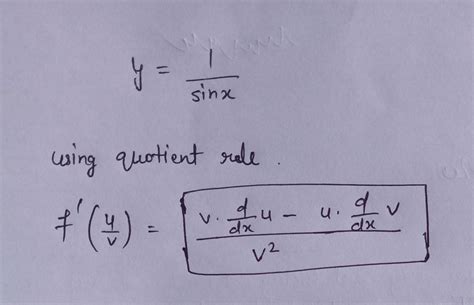 y = 1/sinx
using quotient rule.
f'(u/v) = (v. d/dx u - u. d/dx v)/v²